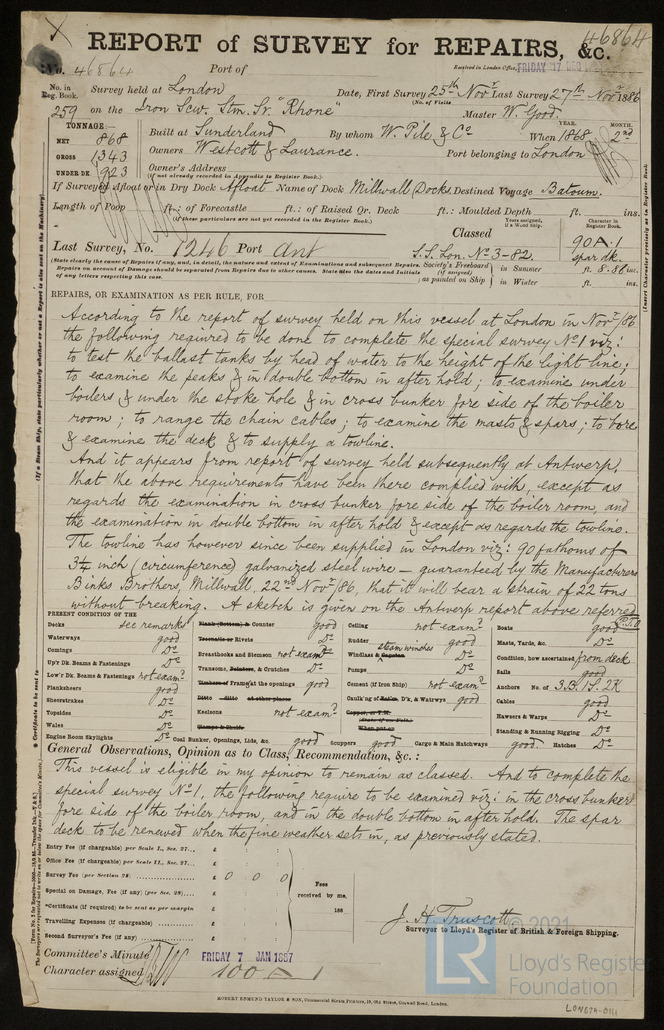 46864
REPORT of SURVEY for REPAIRS, &c.
No. 46864 Port of Received in London Office, FRIDAY 17 DEC
No. in Reg. Book. Survey held at London Date, First Survey 25th Novr Last Survey 27th Novr 1886
(No. of Visits
259 on the Iron Scw. Stm. Sr. "Rhone" Master W. Good.
TONNAGE YEAR. MONTH.
NET 868 Built at Sunderland By whom W. Pile & Co When 1868 2nd
GROSS 1343 Owners Westcott & Laurance. Port belonging to London
UNDER DK 923 Owner's Address
(If not already recorded in Appendix to Register Book.)
If Surveyed Afloat or in Dry Dock Afloat Name of Dock Millwall Docks. Destined Voyage Batoum.
Length of Poop ft.: of Forecastle ft.: of Raised Qr. Deck ft.: Moulded Depth ft. ins.
(If these particulars are not yet recorded in the Register Book.)
Years assigned, if a Wood Ship. Character in Register Book.
Classed
Last Survey, No. 1246 Port Ant S.S. Lon. No 3-82. 90 A.1 spar dk.
(State clearly the cause of Repairs if any, and, in detail, the nature and extent of Examinations and subsequent Repairs.
Repairs on account of Damage should be separated from Repairs due to other causes. State also the dates and Initials of any letters respecting this case.
Society's Freeboard (if assigned) as painted on Ship in Summer ft. ins.
in Winter ft. ins.
REPAIRS, OR EXAMINATION AS PER RULE, FOR
According to the report of survey held on this vessel at London in Novr/86
the following required to be done to complete the special survey No 1 viz:
to test the ballast tanks by head of water to the height of the light line;
to examine the peaks & in double bottom in after hold; to examine under
boilers & under the stoke hole & in cross bunker fore side of the boiler
room; to range the chain cables; to examine the masts & spars; to bore
& examine the deck & to supply a towline.
And it appears from report of survey held subsequently at Antwerp,
that the above requirements have been there complied with, except as
regards the examination in cross bunker fore side of the boiler room, and
the examination in double bottom in after hold & except as regards the towline.
The towline has however since been supplied in London viz: 90 fathoms of
3¼ inch (circumference) galvanized steel wire – guaranteed by the Manufacturers
Binks Brothers, Millwall, 22nd Novr/86, that it will bear a strain of 22 tons
without breaking. A sketch is given on the Antwerp report above referred
P.T.O
PRESENT CONDITION OF THE
Decks see remarks
Waterways good
Comings Do
Up'r Dk. Beams & Fastenings Do
Low'r Dk. Beams & Fastenings not exam?
Planksheers good
Sheerstrakes Do
Topsides Do
Wales Do
Engine Room Skylights Do
Blank (Bottom) & Counter good
Treenails or Rivets Do
Breasthooks and Stemson not exam?
Transoms, Pointers, & Crutches Do
Timbers of Frame at the openings good
Ditto ditto at other places
Keelsons not exam?
Clamps & Shelfs
Coal Bunker, Openings, Lids, &c. good Scuppers good Cargo & Main Hatchways good Hatches Do
Ceiling not exam?
Rudder good
Windlass & Capstan steam winches Do
Pumps Do
Cement (if Iron Ship) not exam?
Caulk'ng of Dk, & Watrwys good
Copper, or Y.M.
(State if on Felt.)
When put on
Boats good
Masts, Yards, &c. Do
Condition, how ascertained from deck
Sails good
Anchors No. of 3.B. 1S. 2K
Cables good
Hawsers & Warps Do
Standing & Running Rigging Do
General Observations, Opinion as to Class, Recommendation, &c.:
This vessel is eligible in my opinion to remain as classed. And to complete the
special survey No 1, the following require to be examined viz: in the cross bunker
fore side of the boiler room, and in the double bottom in after hold. The spar
deck to be renewed when the fine weather sets in, as previously stated.
Entry Fee (if chargeable) per Scale I., Sec. 27... £
Office Fee (if chargeable) per Scale II., Sec. 27... £
Survey Fee (per Section 28) £ 0 0 0
Special on Damage, Fee (if any) (per Sec. 28) £
*Certificate (if required) to be sent as per margin
Travelling Expenses (if chargeable) £
Second Surveyor's Fee (if any) £
Fees received by me,
188
J. H. Truscott
Surveyor to Lloyd's Register of British & Foreign Shipping.
Committee's Minute FRIDAY 7 JAN 1887
Character assigned 100 A 1
ROBERT EDMUND TAYLOR & SON, Commercial Steam Printers, 19, Old Street, Goswell Road, London.
© 2021
LR Lloyd's Register
Foundation
LON679-0111